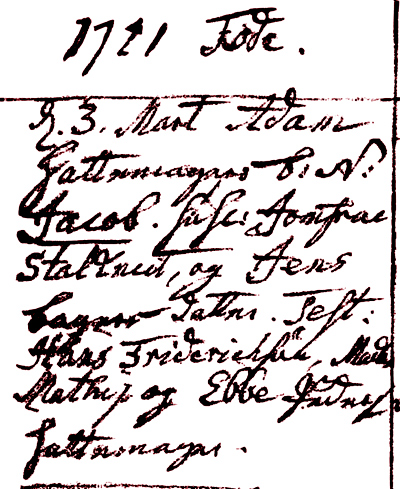 1721 Føde.
D. 3. Mart Adam
Hattemagers b: N:
Jacob. Susc: Jomfrue
Staldknect, og Jens
bagers Datter. Test:
Hans Friderichsen, Mads
Mathis og Ebbe
Hattemager.